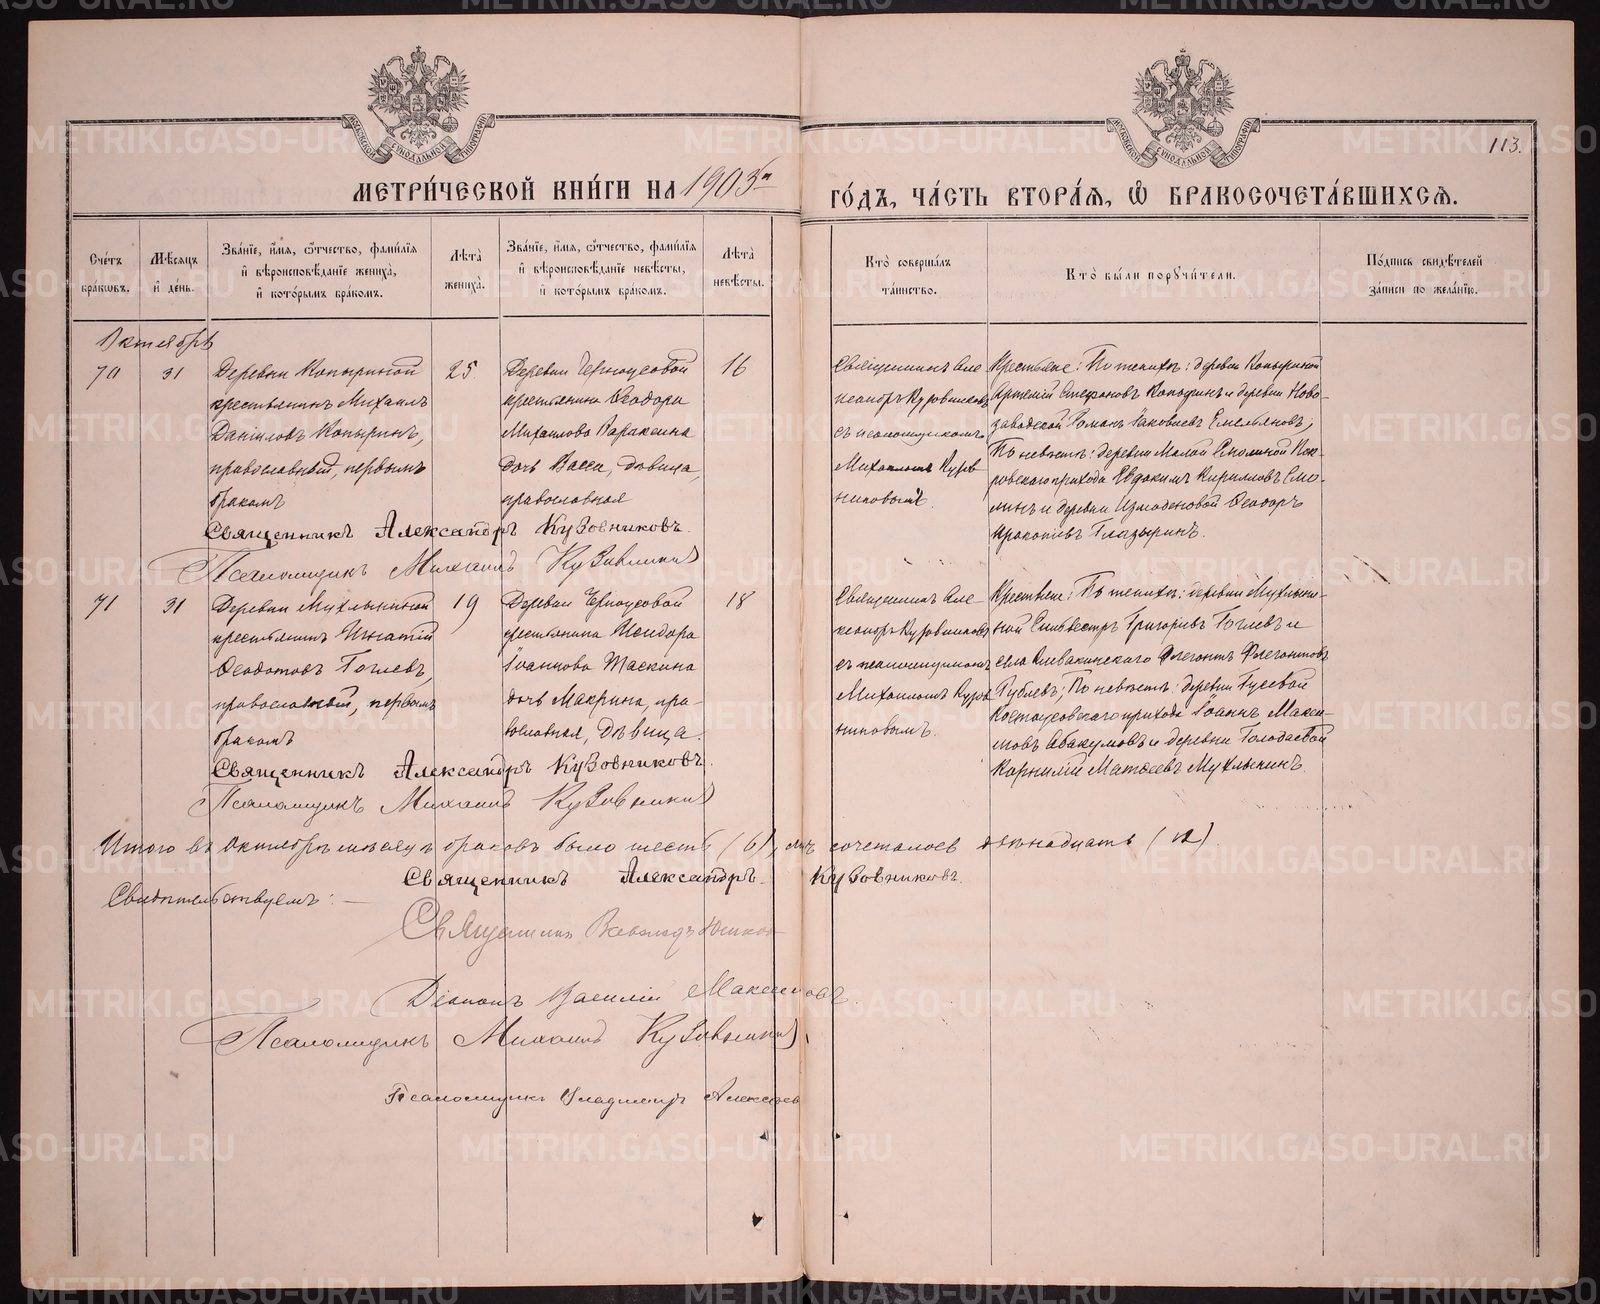 113.
МЕТРИ́ЧЕСКОЙ КНИ́ГИ НА 1903й ГО́ДЪ, ЧА́СТЬ ВТОРА́Я, Ѡ҆ БРАКОСОЧЕТА́ВШИХСЯ.
Сче́тъ бра́ковъ.
Мѣ́сяцъ и҆ де́нь.
Зва́нїе, и҆́мя, ѻ҆́тчество, фами́лїя и҆ вѣроисповѣ́данїе жениха̀, и҆ кото́рымъ бра́комъ.
Лѣ́та жениха̀.
Зва́нїе, и҆́мя, ѻ҆́тчество, фами́лїя и҆ вѣроисповѣ́данїе невѣ́сты, и҆ кото́рымъ бра́комъ.
Лѣ́та невѣ́сты.
Кто̀ соверша́лъ та́инство.
Кто̀ бы́ли пору́чители.
По́дпись свидѣ́телей за́писи по жела́нїю.
Октябрь
70
31
Деревни Копыриной
крестьянинъ Михаилъ
Даніиловъ Копыринъ,
православный, первымъ
бракомъ
25
Деревни Черноусовой
крестьянина Ѳеодора
Михайлова Вараксина
дочь Васса, дѣвица,
православная
16
Священникъ Але
ксандръ Кузовниковъ
съ псаломщикомъ
Михаиломъ Кузов
никовымъ.
Крестьяне: По женихѣ: деревни Копыриной
Артемій Стефановъ Копыринъ и деревни Ново-
заводской Романъ Іаковлевъ Емельяновъ;
По невѣстѣ: деревни Малой
ровскаго прихода Евдокимъ Кирилловъ Смо-
линъ и деревни Измоденовой Ѳеодоръ
Прокопіевъ Глазыринъ.
Священникъ Александръ Кузовниковъ.
Псаломщикъ Михаилъ Кузовников
71
31
Деревни Мухлыниной
крестьянинъ Игнатій
Ѳеодотовъ
православный, первымъ
бракомъ
19
Деревни Черноусовой
крестьянина Исидора
Іоаннова Таскина
дочь Макрина, пра-
вославная, дѣвица.
18
Священникъ Але-
ксандръ Кузовниковъ
съ псаломщикомъ
Михаиломъ Кузов
никовымъ.
Крестьяне: По женихѣ: деревни Мухлыни-
ной Сильвестръ Григоріевъ и
села Клевакинскаго Флегонтъ Флегонтовъ
Гублевъ; По невѣстѣ: деревни Гусевой
Костоусовскаго прихода Іоаннъ Макси-
мовъ Абакумовъ и деревни Голодаевой
Корнилій Матѳеевъ Мухлынинъ.
Священникъ Александръ Кузовниковъ.
Псаломщикъ Михаилъ Кузовников
Итого въ Октябрѣ мѣсяцѣ браковъ было шесть (6), лицъ сочеталось двѣнадцать (12).
Священникъ Александръ Кузовниковъ.
Свидѣтельствуемъ:
Священник Всеволодъ Юшков
Діаконъ Василій Максимовъ.
Псаломщикъ Михаилъ Кузовников
Псаломщикъ Владимиръ Алексѣев
METRIKI.GASO-URAL.RU